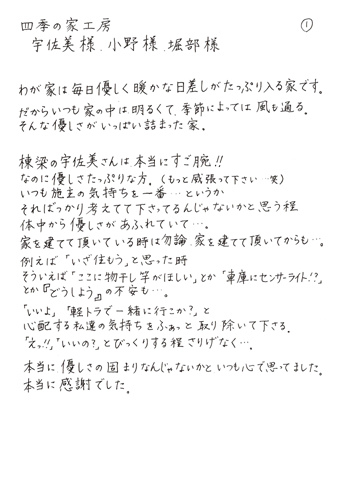 四季の家工房
①
宇佐美様、小野様、堀部様
わが家は毎日優しく暖かな日差しがたっぷり入る家です。
だからいつも家の中は明るくて、季節によっては風も通る。
そんな優しさがいっぱい詰まった家。
棟梁の宇佐美さんは本当にすご腕!!
なのに優しさたっぷりな方。(もっと威張って下さい…笑)
いつも施主の気持ちを一番…というか
そればっかり考えてて下さってるんじゃないかと思う程
体中から優しさがあふれていて…。
家を建てて頂いている時は勿論、家を建てて頂いてからも…。
例えば「いざ住もう」と思った時
そういえば「ここに物干し竿がほしい」とか「車庫にセンサーライト!?」
とか『どうしよう』の不安も…。
「いいよ」「軽トラで一緒に行こか?」と
心配する私達の気持ちをふあっと取り除いて下さる。
「えっ!!」「いいの?」とびっくりする程さりげなく…。
本当に優しさの固まりなんじゃないかといつも心で思ってました。
本当に感謝でした。